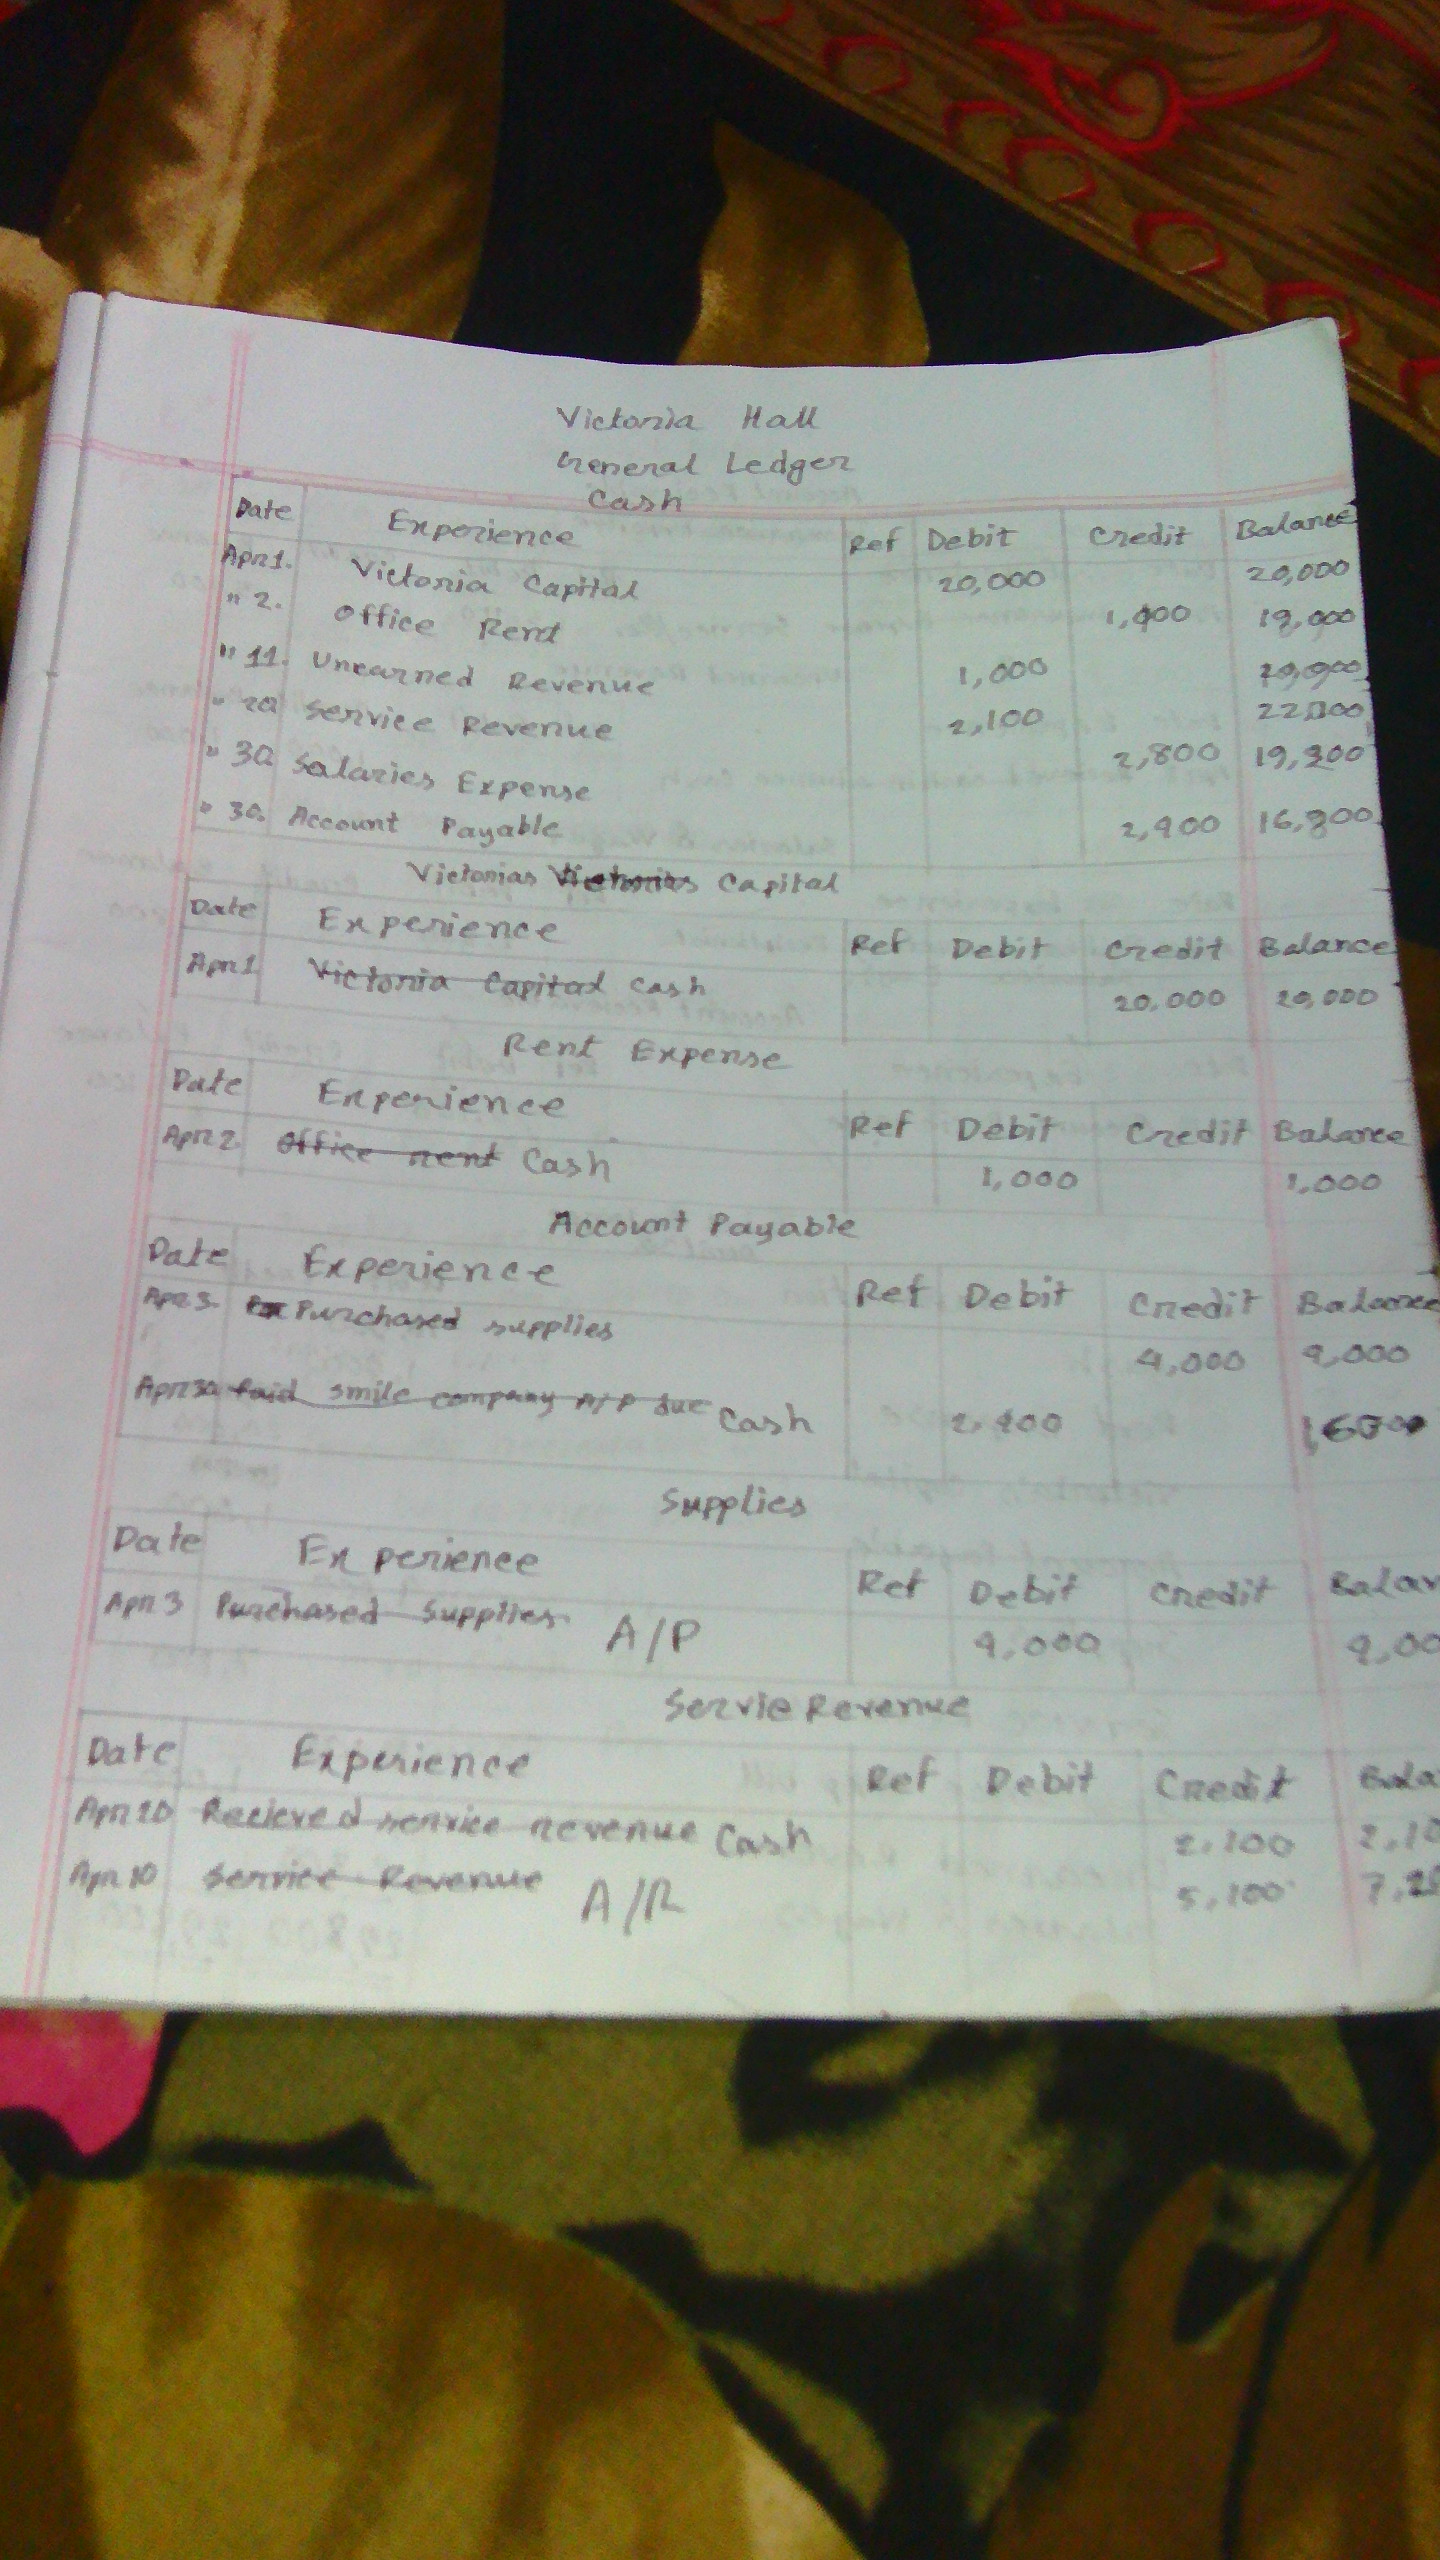 Victoria Hall
General Ledger
Cash
Date Experience Ref Debit Credit Balance
Apr 1. Victoria Capital 20,000 20,000
" 2. Office Rent 19,000
" 11. Unearned Revenue 1,000
" 20 Service Revenue 2,100
" 30 Salaries Expense 2,800 19,300
" 30. Account Payable 2,400
Victorias Victorias Capital
Date Experience Ref Debit Credit Balance
Apr 1 Victoria Capital Cash 20,000 20,000
Rent Expense
Date Experience Ref Debit Credit Balance
Apr 2 Office rent Cash 1,000 1,000
Account Payable
Date Experience Ref Debit Credit Balance
Apr 3. Purchased supplies 4,000 4,000
Apr 30 Paid smile company A/P due Cash 2,400
Supplies
Date Experience Ref Debit Credit Balan
Apr 3 Purchased Supplies A/P 4,000 4,00
Servie Revenue
Date Experience Ref Debit Credit Bala
Apr 20 Recieved service revenue Cash 2,100 2,10
Apr 10 Service Revenue A/R 5,100